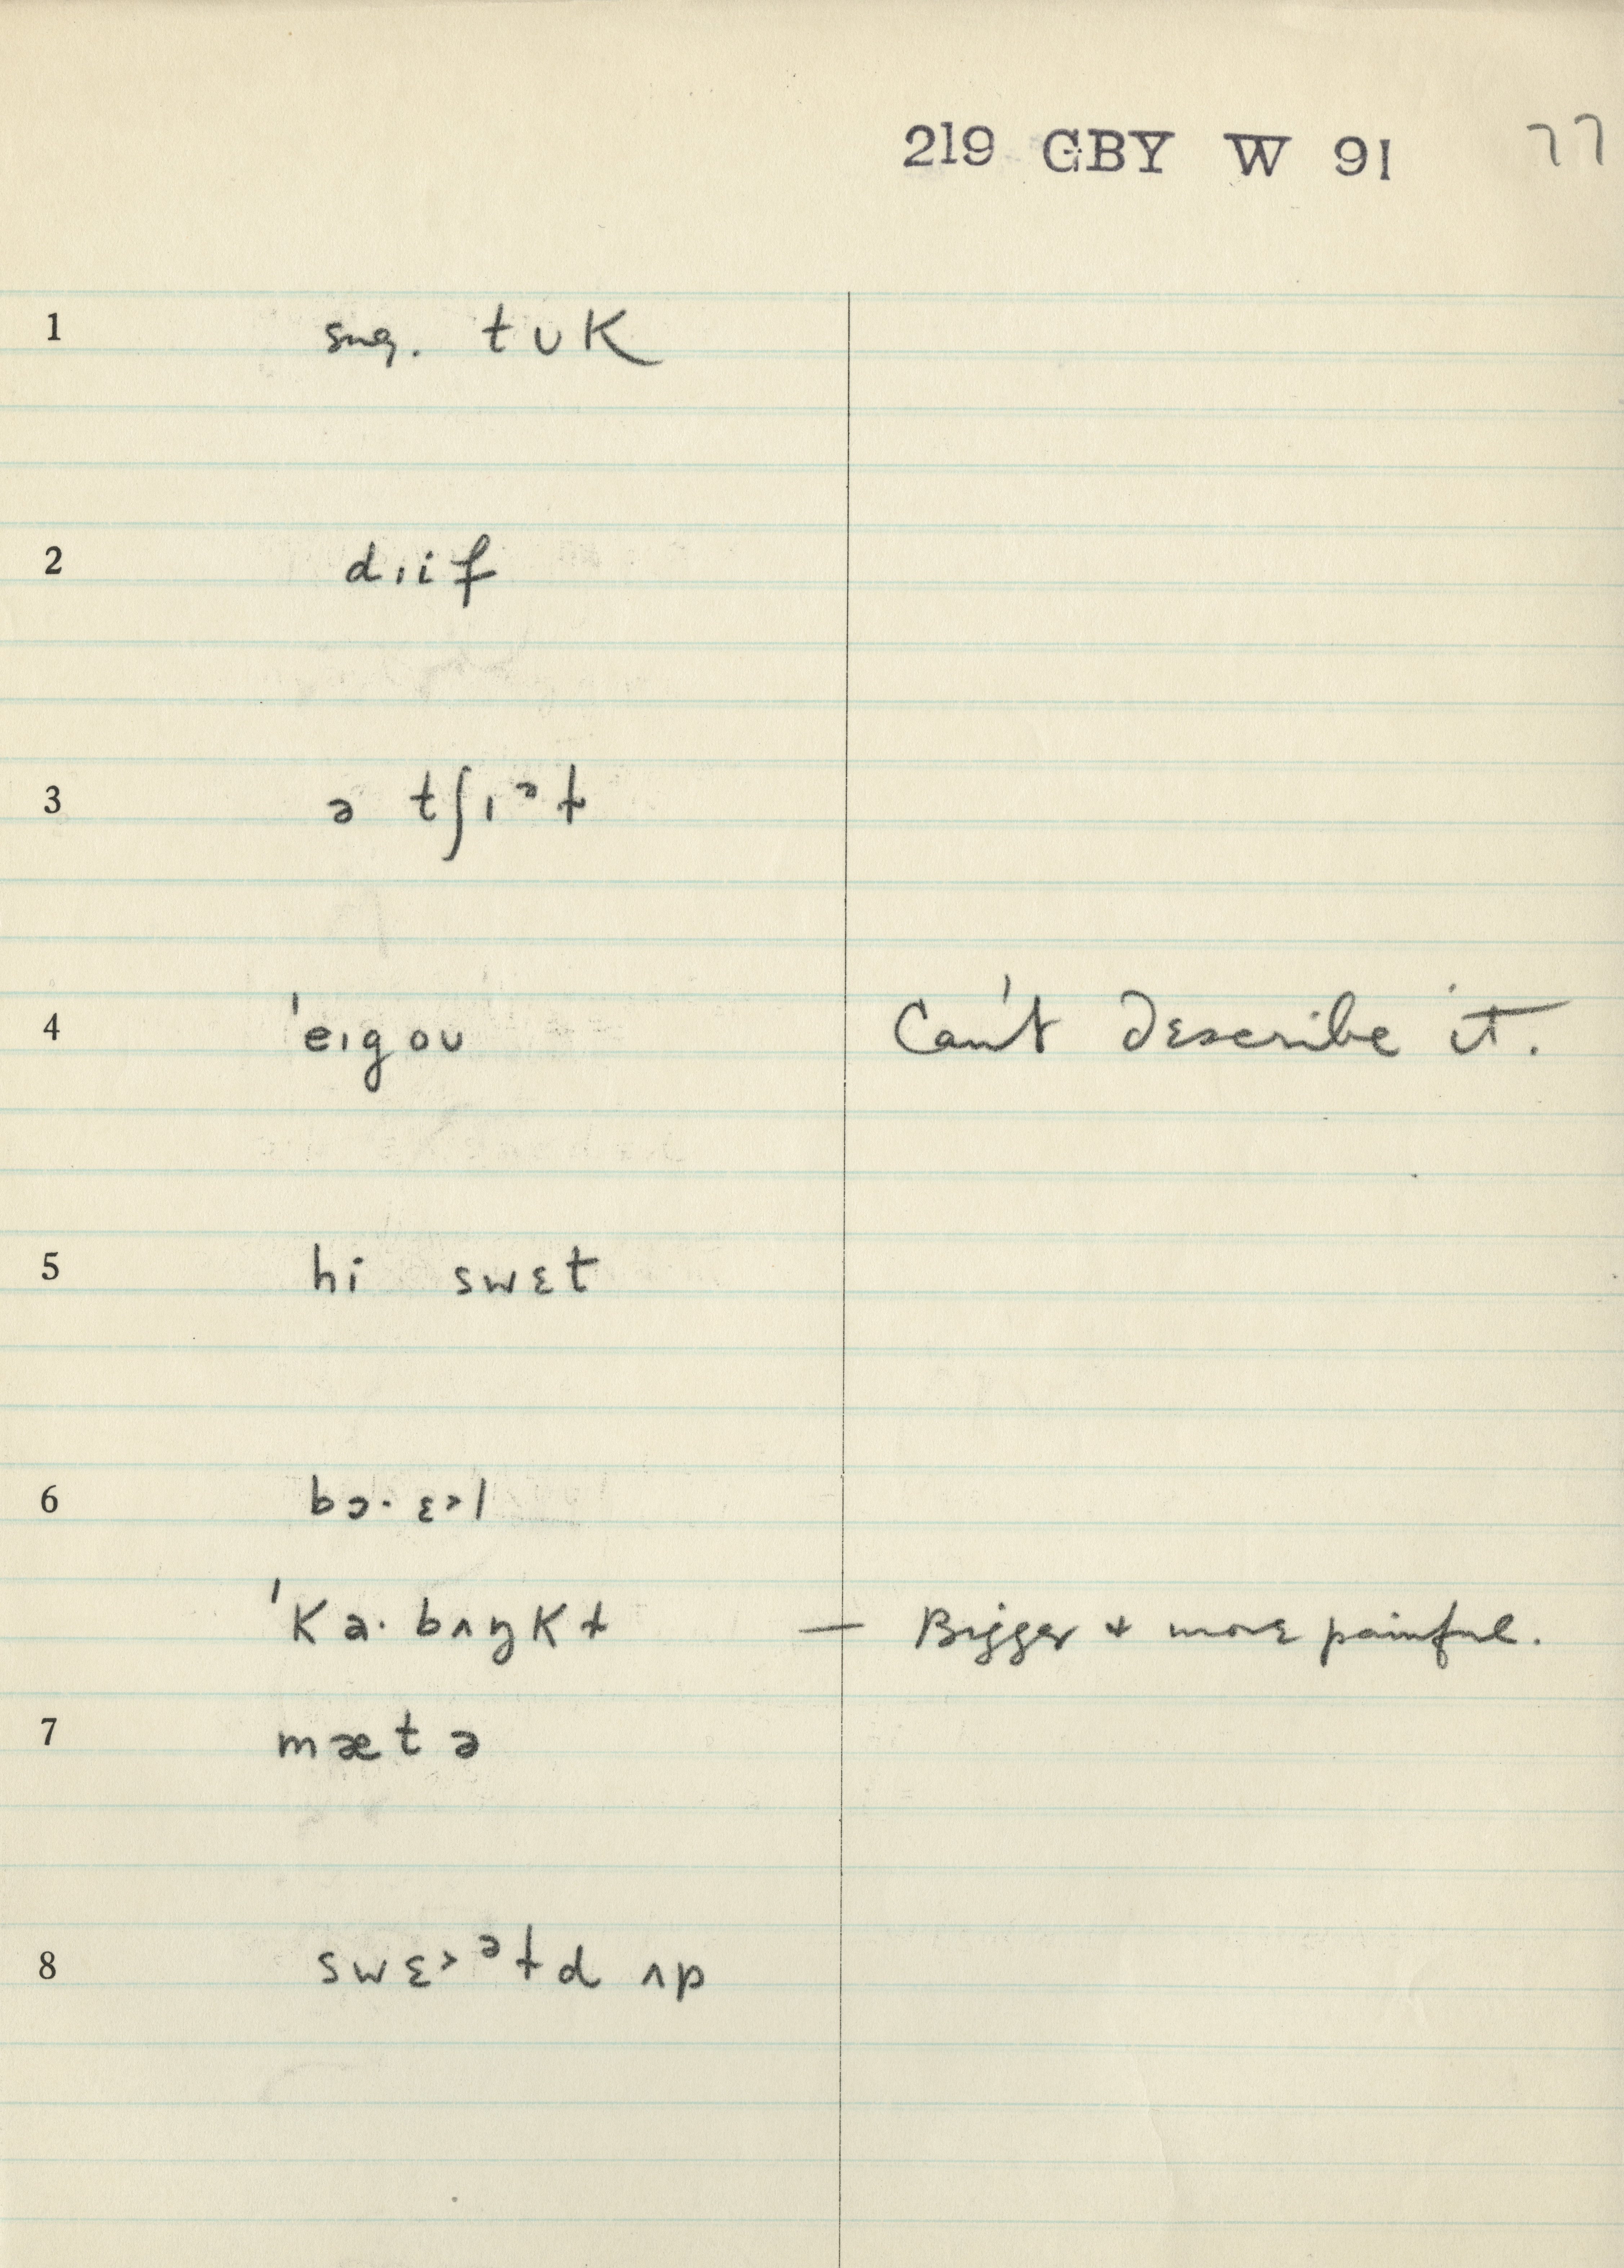 219 GBY W 91 77
1 sug. tʊK
2 dɪif
3 ə tʃɪᵊt
4 ˈeɪgoʊ Can't describe it.
5 hi swɛt
6 bɔ· ɛ˃l
ˈKə· bʌŋKɫ — Bigger & more painful.
7 mætə
8 swɛ˃ᵊɫd ʌp